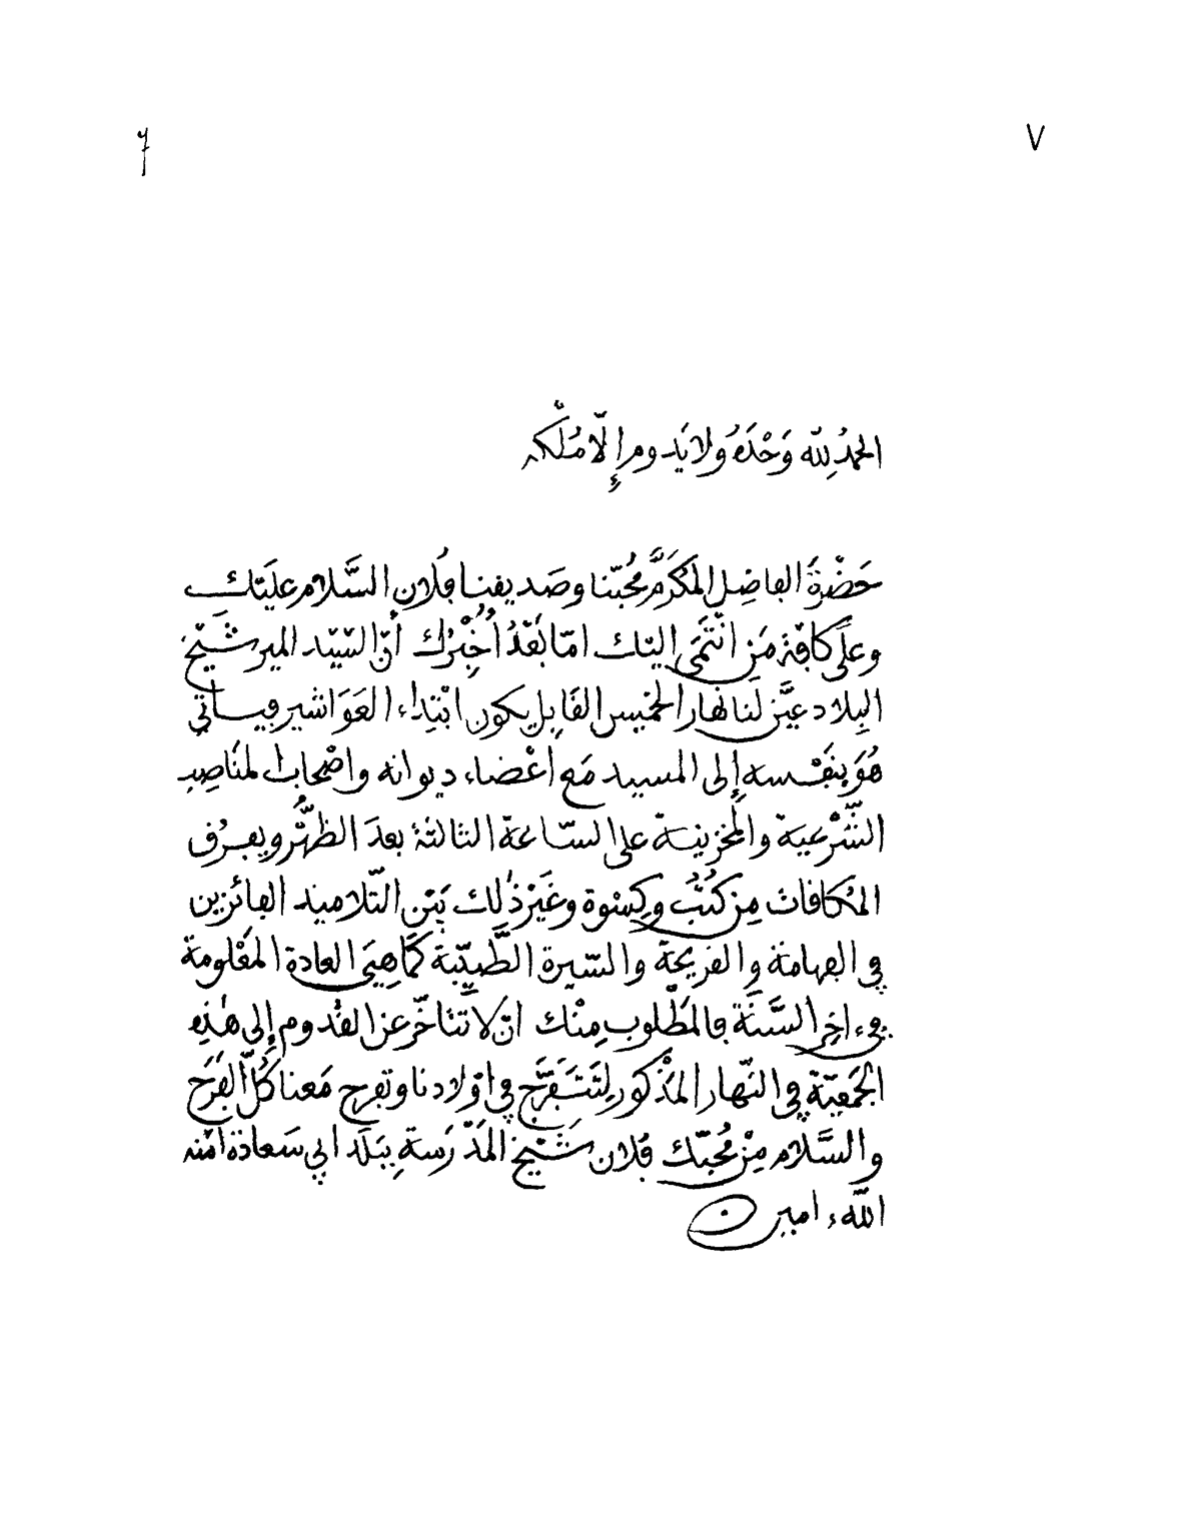 7 ٧
الحمدُ لِلّٰه وَحْدَهُ ولا يَدوم إِلّا مُلْكُه
حَضْرَةَ الفاضِل المُكَرَّم مُحِبّنا وصَديقنا فُلان السَّلام عليْك
وعلَى كافّة مَن انْتَمَى اليْك امّا بَعْدُ أُخْبِرُك أنّ السّيّد المير شَيْخ
البِلاد عيَّن لَنا نهار الخميس القَابِل يكون ابْتِداء العَوَاشير فيأتي
هُوَ بِنَفْسه إِلى المسيد مَع اعْضاء ديوانه واصْحاب المَنَاصِب
الشّرْعية والمَخْزنية على السّاعة الثالثة بعدَ الظُّهْر ويفرُق
المُكافات مِن كُتُب وكِسْوة وغَيْر ذٰلِك بَيْن التّلاميذ الفائزين
في الفهامَة والقريحَة والسّيرة الطَّيِّبَة كَمَا هِيَ العادة المَعْلومة
في ءاخِر السَّنَة فالمَطْلوب مِنْك انّ لا تَتأخّر عن القُدوم إِلى هٰذِه
الجَمْعيّة في النّهار المَذْكور لِتَتَفَرَّج في اوْلادنا وتفرح مَعنا كُلّ الفَرَح
والسَّلام مِنْ مُحِبّك فُلان شَيْخ المَدْرَسةِ بِبَلَد ابي سَعادة امّنه
اللّٰه ءامين